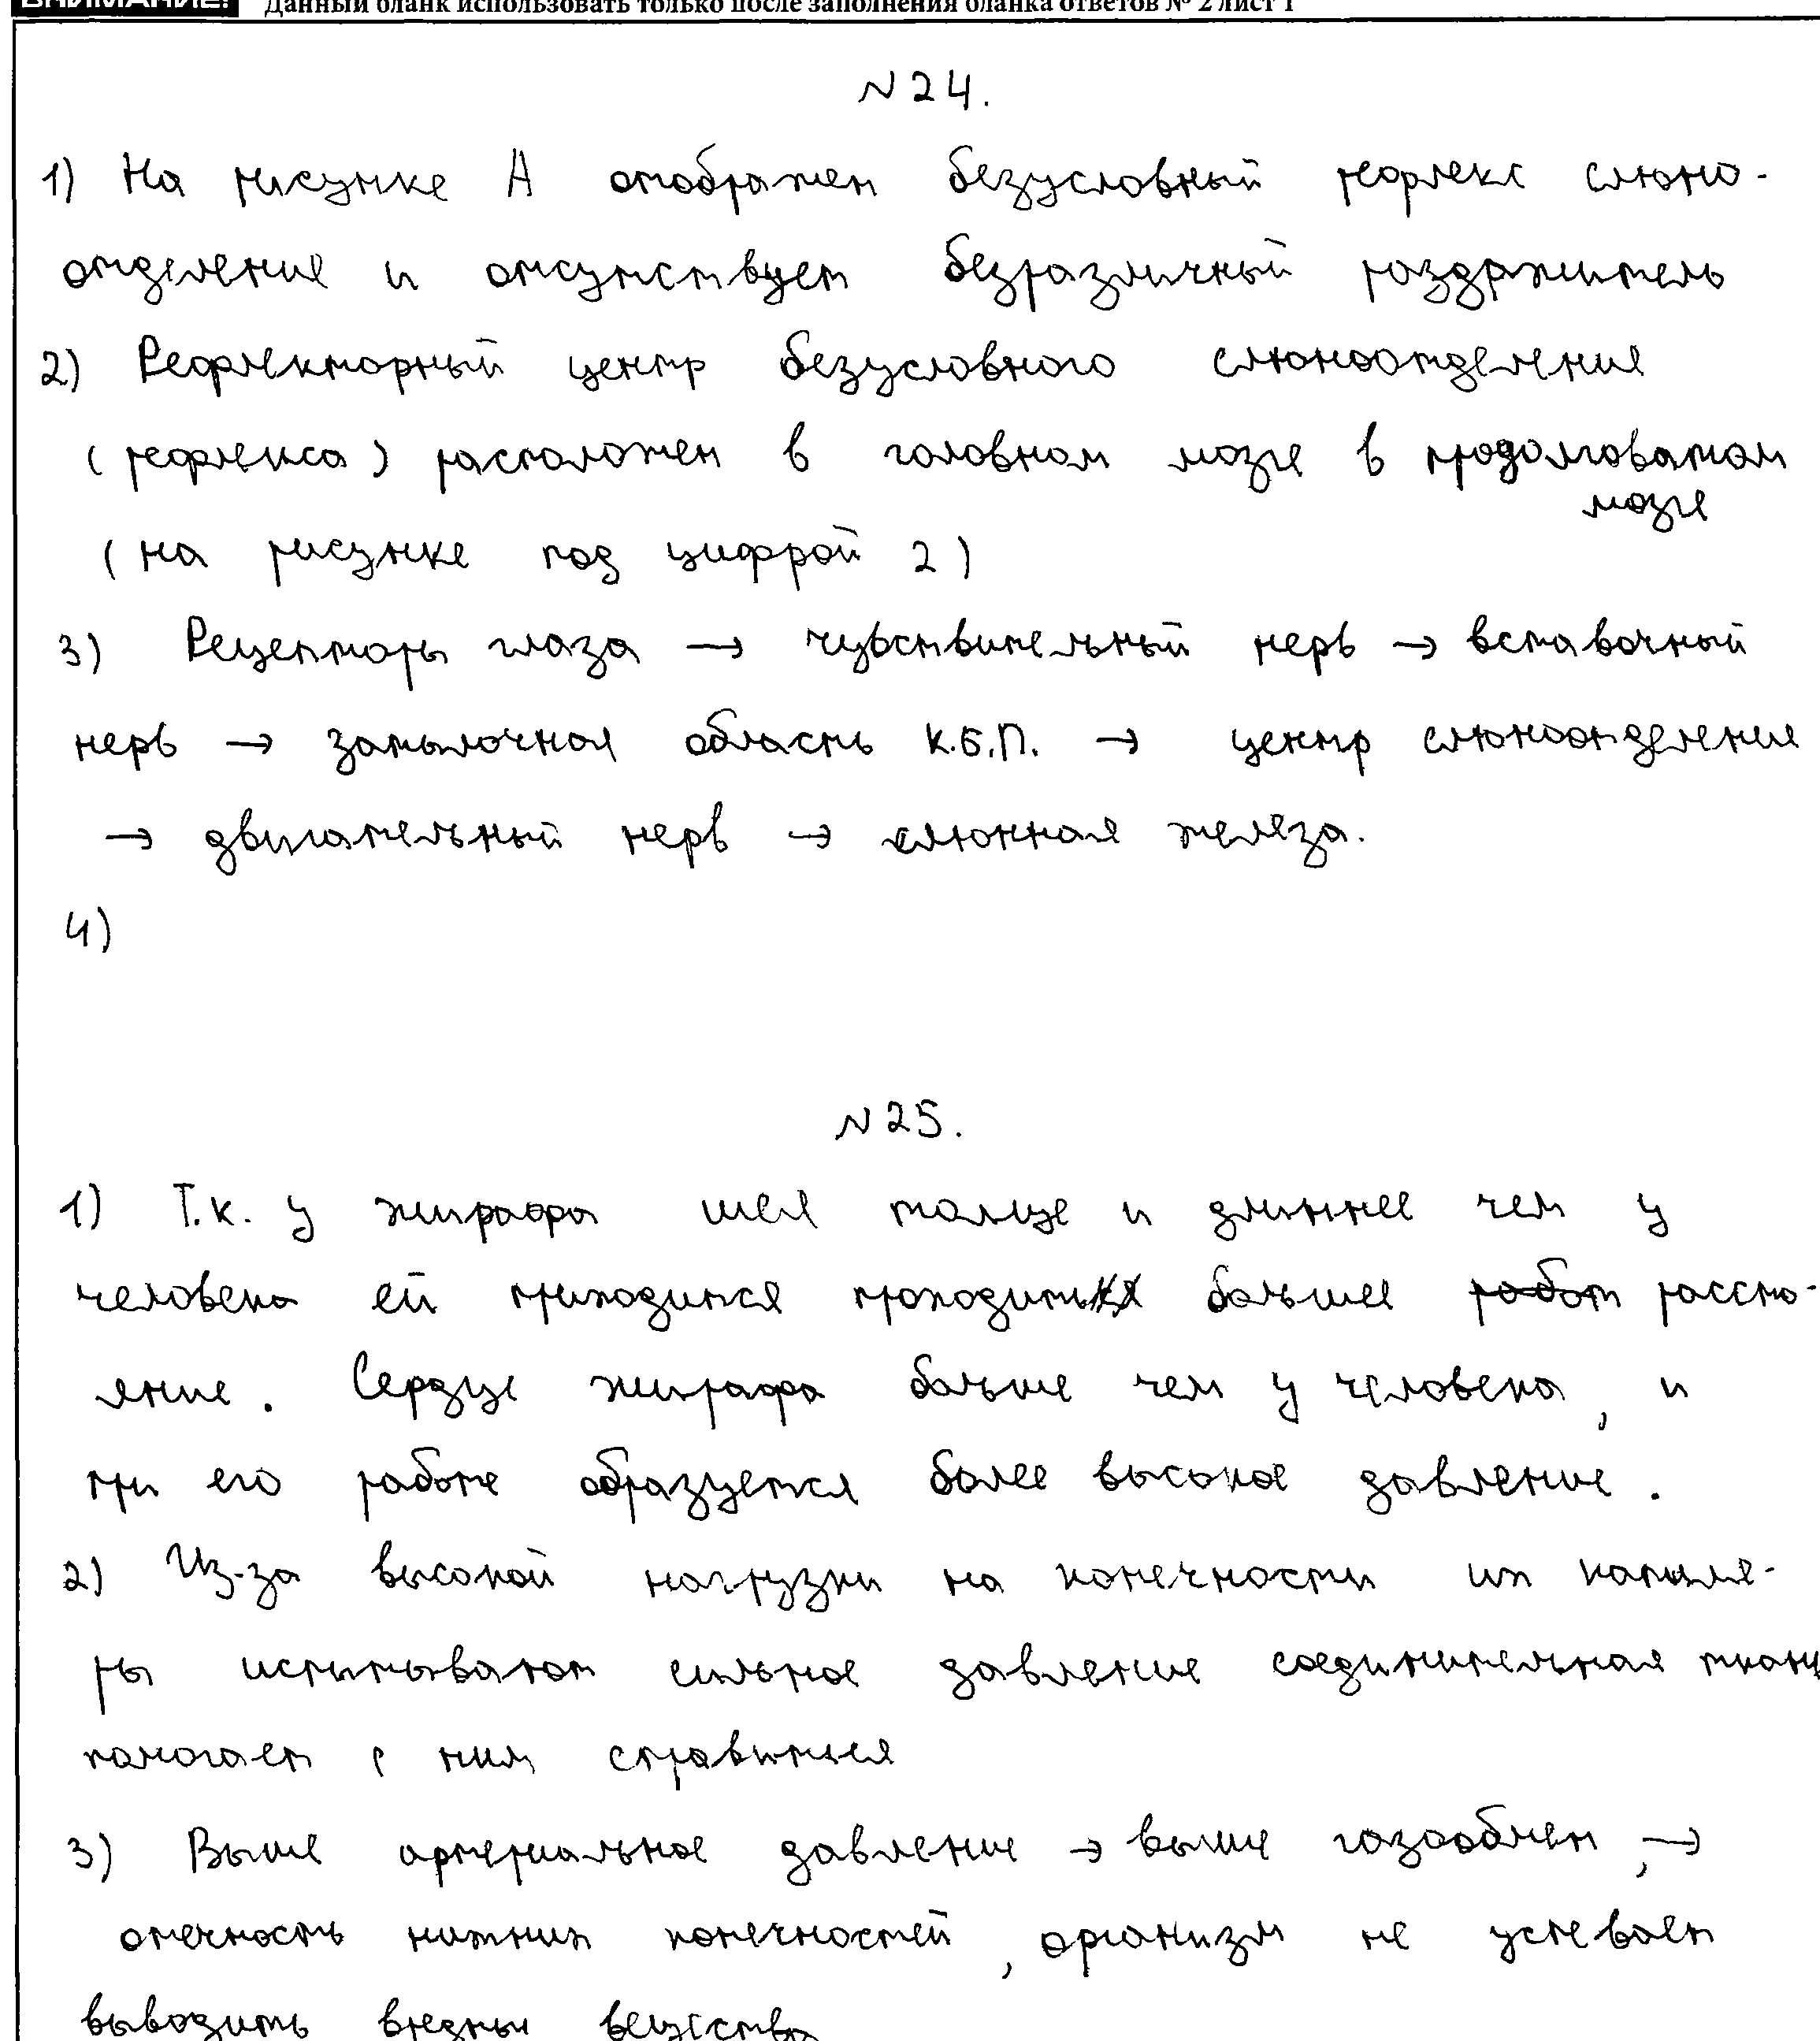 ВНИМАНИЕ! Данный бланк использовать только после заполнения бланка ответов № 2 лист 1
N 24.
1) На рисунке А отображен безусловный рефлекс слюно-
отделения и отсутствует безразличный раздражитель
2) Рефлекторный центр безусловного слюноотделения
(рефлекса) расположен в головном мозге в продолговатом
мозге
(на рисунке под цифрой 2)
3) Рецепторы глаза → чувствительный нерв → вставочный
нерв → затылочная область К.Б.П. → центр слюноотделения
→ двигательный нерв → слюнная железа.
4)
N 25.
1) Т.к. у жирафа шея толще и длиннее чем у
человека ей приходится проходить большее работ рассто-
яние. Сердце жирафа больше чем у человека, и
при его работе образуется более высокое давление.
2) Из-за высокой нагрузки на конечности их капиля-
ры испытывают сильное давление соединительная ткань
помогает с ним справиться
3) Выше артериальное давление → выше газообмен, →
отечность нижних конечностей, организм не успевает
выводить вредны вещества